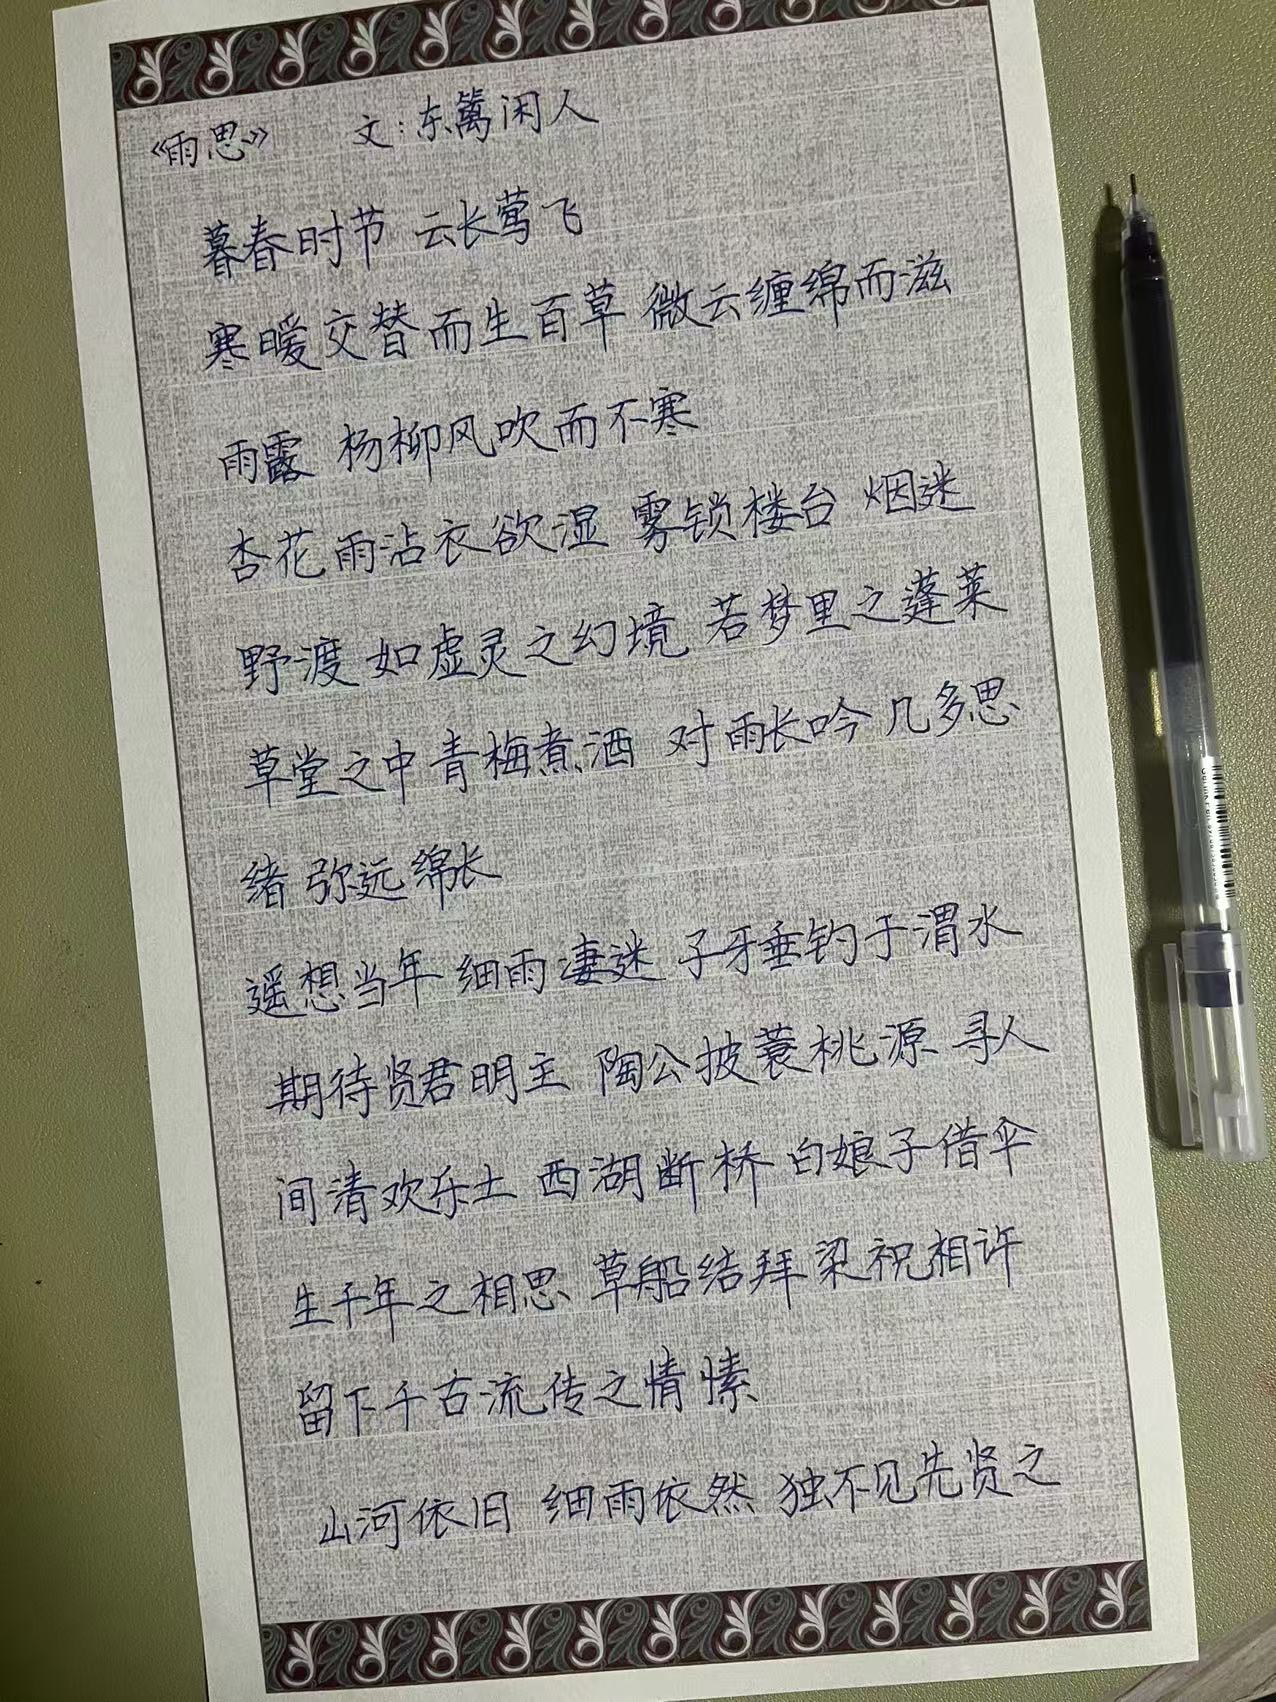 《雨思》 文:东篱闲人
暮春时节 云长莺飞
寒暖交替而生百草 微云缠绵而滋
雨露 杨柳风吹而不寒
杏花雨沾衣欲湿 雾锁楼台 烟迷
野渡 如虚灵之幻境 若梦里之蓬莱
草堂之中青梅煮酒 对雨长吟 几多思
绪 弥远绵长
遥想当年 细雨凄迷 子牙垂钓于渭水
期待贤君明主 陶公披蓑桃源 寻人
间清欢乐土 西湖断桥 白娘子借伞
生千年之相思 草船结拜梁祝相许
留下千古流传之情愫
山河依旧 细雨依然 独不见先贤之